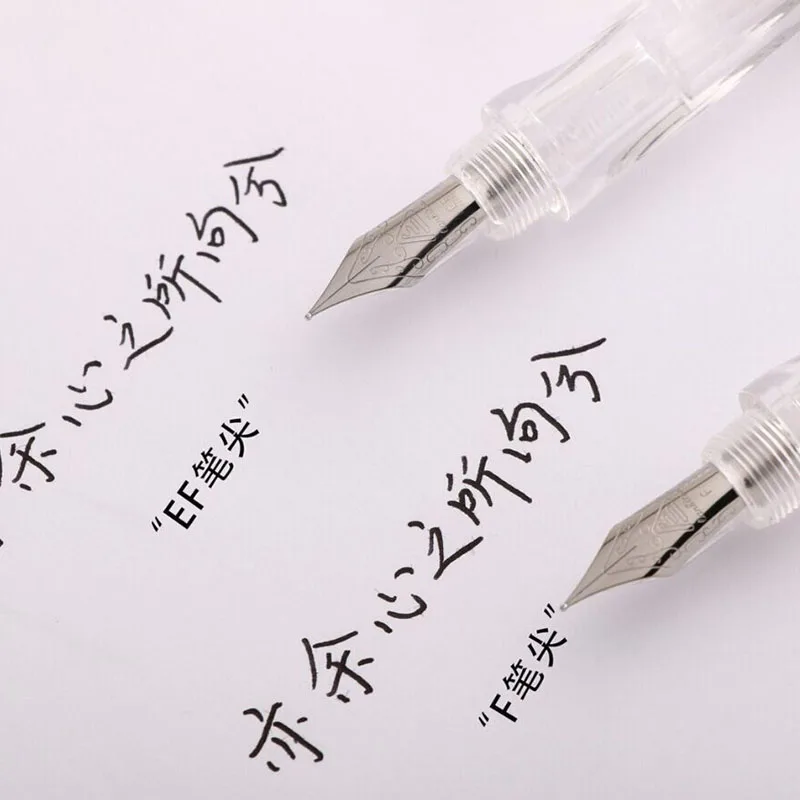 余心之所向兮
“EF笔尖”
亦余心之所向兮
“F笔尖”